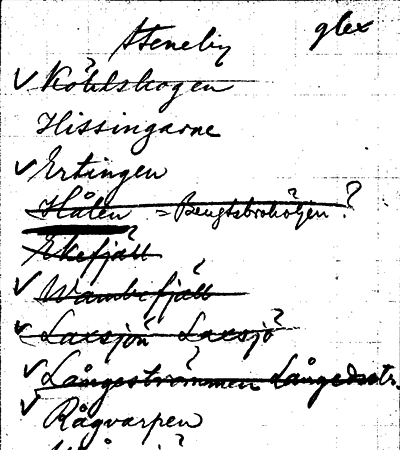 glex
Steneby
✓ Kölshogen
Hissingarne
✓ Ertingen
Hålen = Bengtsbrohöljen ?
Ekefjäll
✓ Wambefjäll ?
✓ Laxsjön Laxsjö ?
✓ Långeströmmen Långedstr.
✓ Rågvarpen